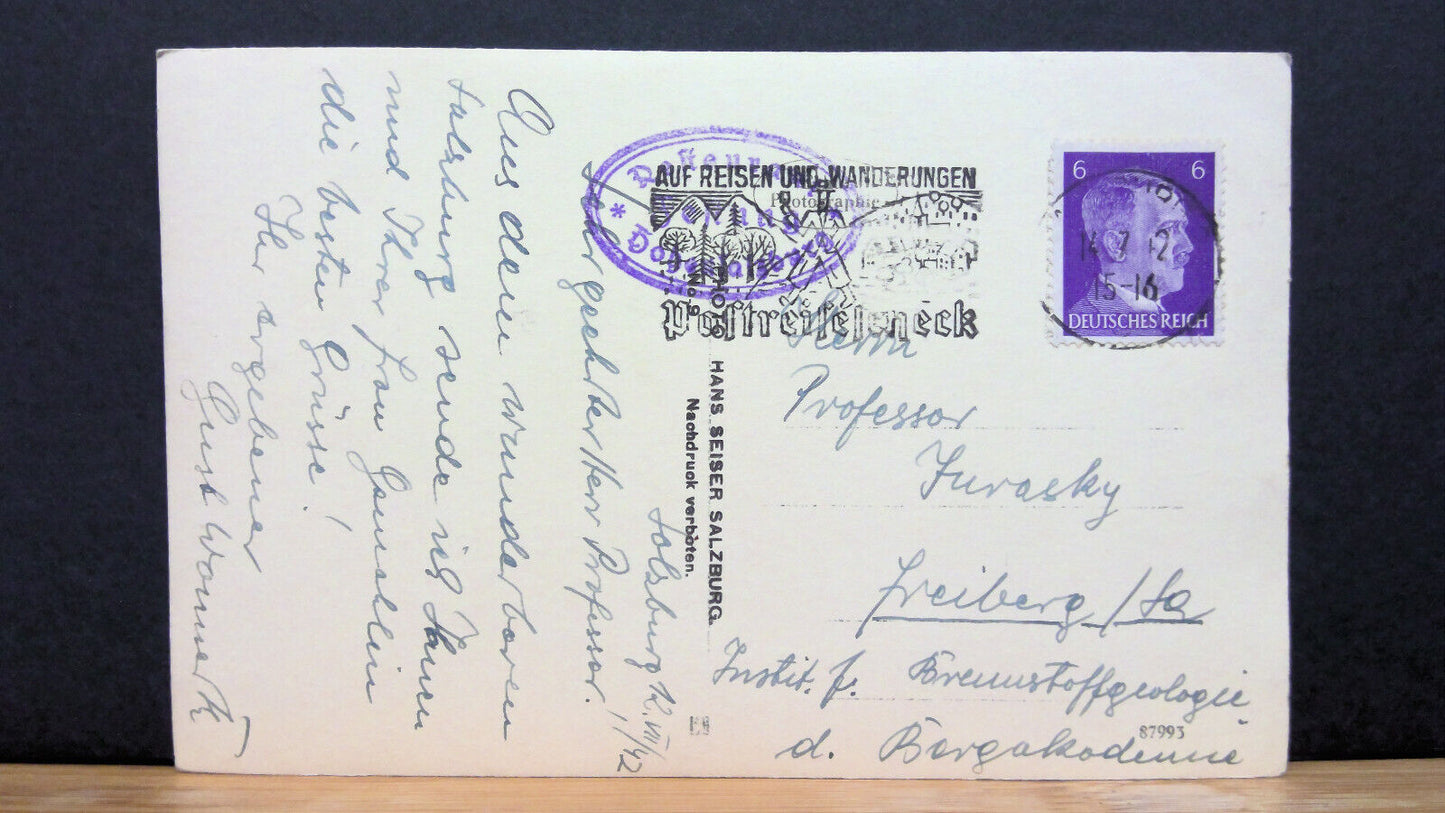 Salzburg 12.VII/42
Sehr geehrter Herr Professor!
Aus dem wunderbaren
Salzburg sende ich Ihnen
und Ihrer Frau Gemahlin
die besten Grüsse!
Ihr ergebener
AUF REISEN UND WANDERUNGEN
Photographie
Postreisescheck
6 6
14.7.42
15-16
DEUTSCHES REICH
HANS SEISER SALZBURG.
Nachdruck verboten.
Herrn
Professor
Jurasky
Freiberg/Sa
Instit. f. Brennstoffgeologie
d. Bergakademie
87993